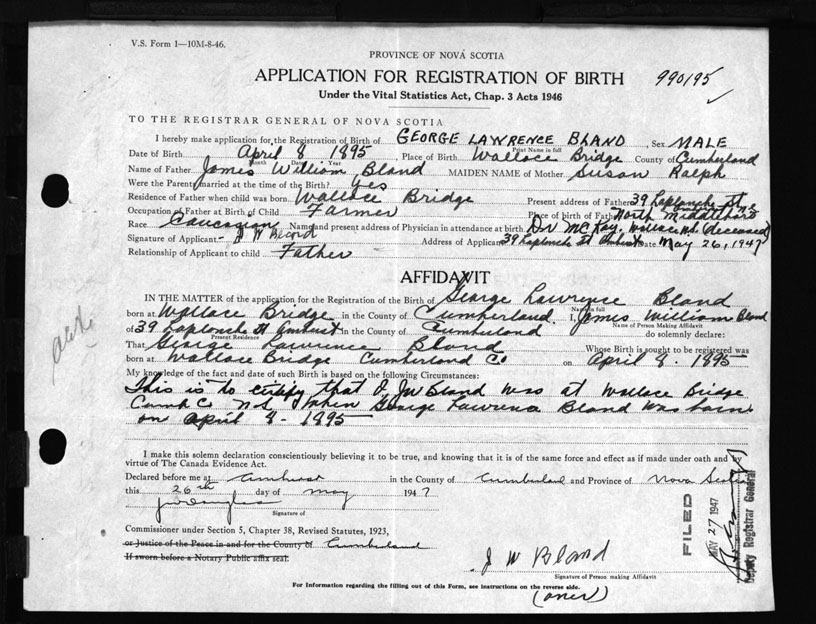 V.S. Form 1—10M-8-46.
PROVINCE OF NOVA SCOTIA
APPLICATION FOR REGISTRATION OF BIRTH 990195
Under the Vital Statistics Act, Chap. 3 Acts 1946
TO THE REGISTRAR GENERAL OF NOVA SCOTIA
I hereby make application for the Registration of Birth of GEORGE LAWRENCE BLAND, Sex MALE
Print Name in full
Date of Birth April 8 1895, Place of Birth Wallace Bridge County of Cumberland
Month Date Year
Name of Father James William Bland MAIDEN NAME of Mother Susan Ralph
Were the Parents married at the time of the Birth? Yes
Residence of Father when child was born Wallace Bridge Present address of Father 39 Laplanche St
Occupation of Father at Birth of Child Farmer Place of birth of Father North Middleboro
Race Caucasian Name and present address of Physician in attendance at birth Dr McKay, Wallace N.S. (deceased)
Signature of Applicant J W Bland Address of Applicant 39 Laplanche St Amherst Date May 26, 1947
Relationship of Applicant to child Father
AFFIDAVIT
IN THE MATTER of the application for the Registration of the Birth of George Lawrence Bland
Name in full
born at Wallace Bridge in the County of Cumberland. I, James William Bland
Name of Person Making Affidavit
of 39 Laplanche St Amherst in the County of Cumberland do solemnly declare:
Present Residence
That George Lawrence Bland Whose Birth is sought to be registered was
born at Wallace Bridge Cumberland Co on April 8. 1895
My knowledge of the fact and date of such Birth is based on the following Circumstances:
This is to certify that I JW Bland was at Wallace Bridge
Cumb C N S when George Lawrence Bland was born
on April 8 - 1895
I make this solemn declaration conscientiously believing it to be true, and knowing that it is of the same force and effect as if made under oath and by
virtue of The Canada Evidence Act.
Declared before me at Amherst in the County of Cumberland and Province of Nova Scotia
this 26th day of May 1947
Signature of
Commissioner under Section 5, Chapter 38, Revised Statutes, 1923,
or Justice of the Peace in and for the County of Cumberland
If sworn before a Notary Public affix seal.
J W Bland
Signature of Person making Affidavit
For Information regarding the filling out of this Form, see instructions on the reverse side.
(over)
FILED
MAY 27 1947
Deputy Registrar General